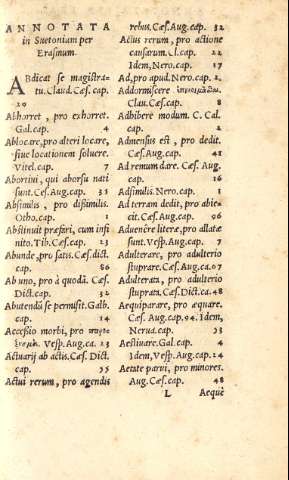 ANNOTATA
in Suetonium per
Erasmum.
ABdicat se magistra-
tu. Claud. Cæs. cap.
29
Abhorret, pro exhorret.
Gal. cap. 4
Ablocare, pro alteri locare,
siue locationem soluere.
Vitel. cap. 7
Abortiui, qui aborsu nati
sunt. Cæs. Aug. cap. 51
Absimilis, pro dissimilis.
Otho. cap. 1
Abstinuit præfari, cum infi
nito. Tib. Cæs. cap. 23
Abunde, pro satis. Cæs. dict.
cap. 86
Ab uno, pro à quodā. Cæs.
Dict. cap. 32
Abutendū se permisit. Galb.
cap. 14
Accessio morbi, pro
Vesp. Aug. ca. 23
Actuarij ab actis. Cæs. Dict.
cap. 55
Actui rerum, pro agendis
rebus. Cæs. Aug. cap. 32
Actus rerum, pro actione
causarum. Cl. cap. 22
Idem, Nero. cap. 17
Ad, pro apud. Nero. cap. 2
Addormiscere
Clau. Cæs. cap. 8
Adhibere modum. C. Cal.
cap. 2
Admensus est, pro dedit.
Cæs. Aug. cap. 41
Ad remum dare. Cæs. Aug.
cap. 16
Adsimilis. Nero. cap. 1
Ad terram dedit, pro abie-
cit. Cæs. Aug. cap. 96
Aduenere literæ, pro allatæ
sunt. Vesp. Aug. cap. 7
Adulterare, pro adulterio
stuprare. Cæs. Aug. ca. 67
Adulterata, pro adulterio
stuprata. Cæs. Dict. ca. 48
Aequiparare, pro æquare.
Cæs. Aug. cap. 94. Idem,
Nerua. cap. 53
Aestiuare. Gal. cap. 4
Idem, Vesp. Aug. cap. 24
Aetate parui, pro minores.
Aug. Cæs. cap. 48
L Aequè